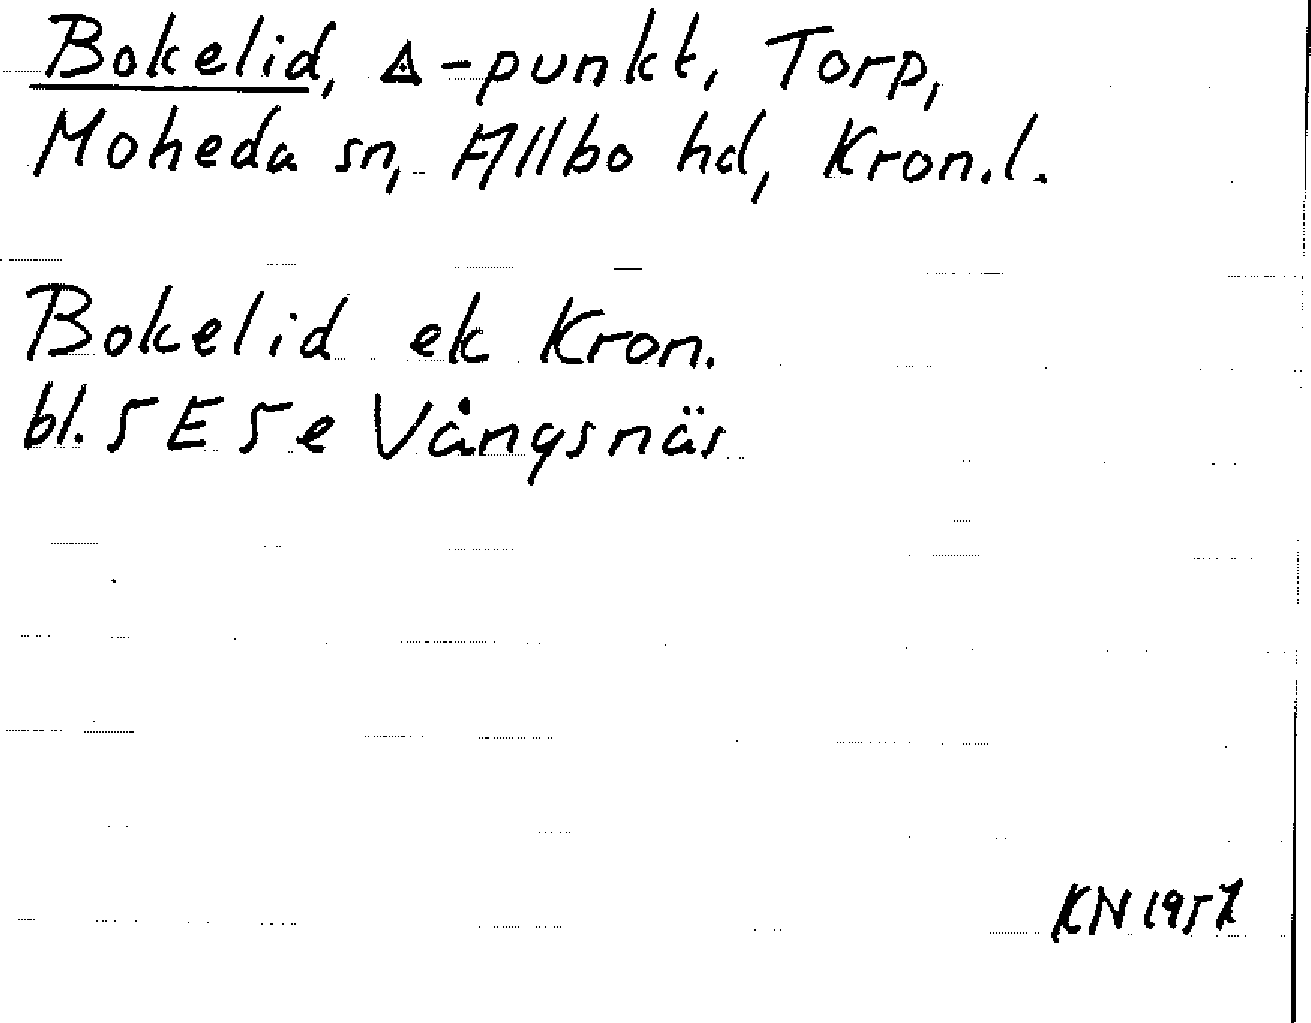 Bokelid, △-punkt, Torp,
Moheda sn, Allbo hd, Kron.l.
Bokelid ek Kron.
bl. 5 E 5 e Vångsnäs
KN 1957